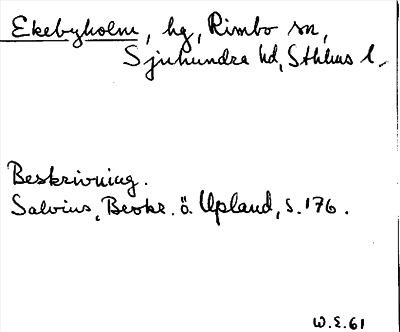 Ekebyholm, hg, Rimbo sn,
Sjuhundra hd, Sthlms l.
Beskrivning.
Salvius, Beskr. ö. Upland, s. 176.
W.E. 61